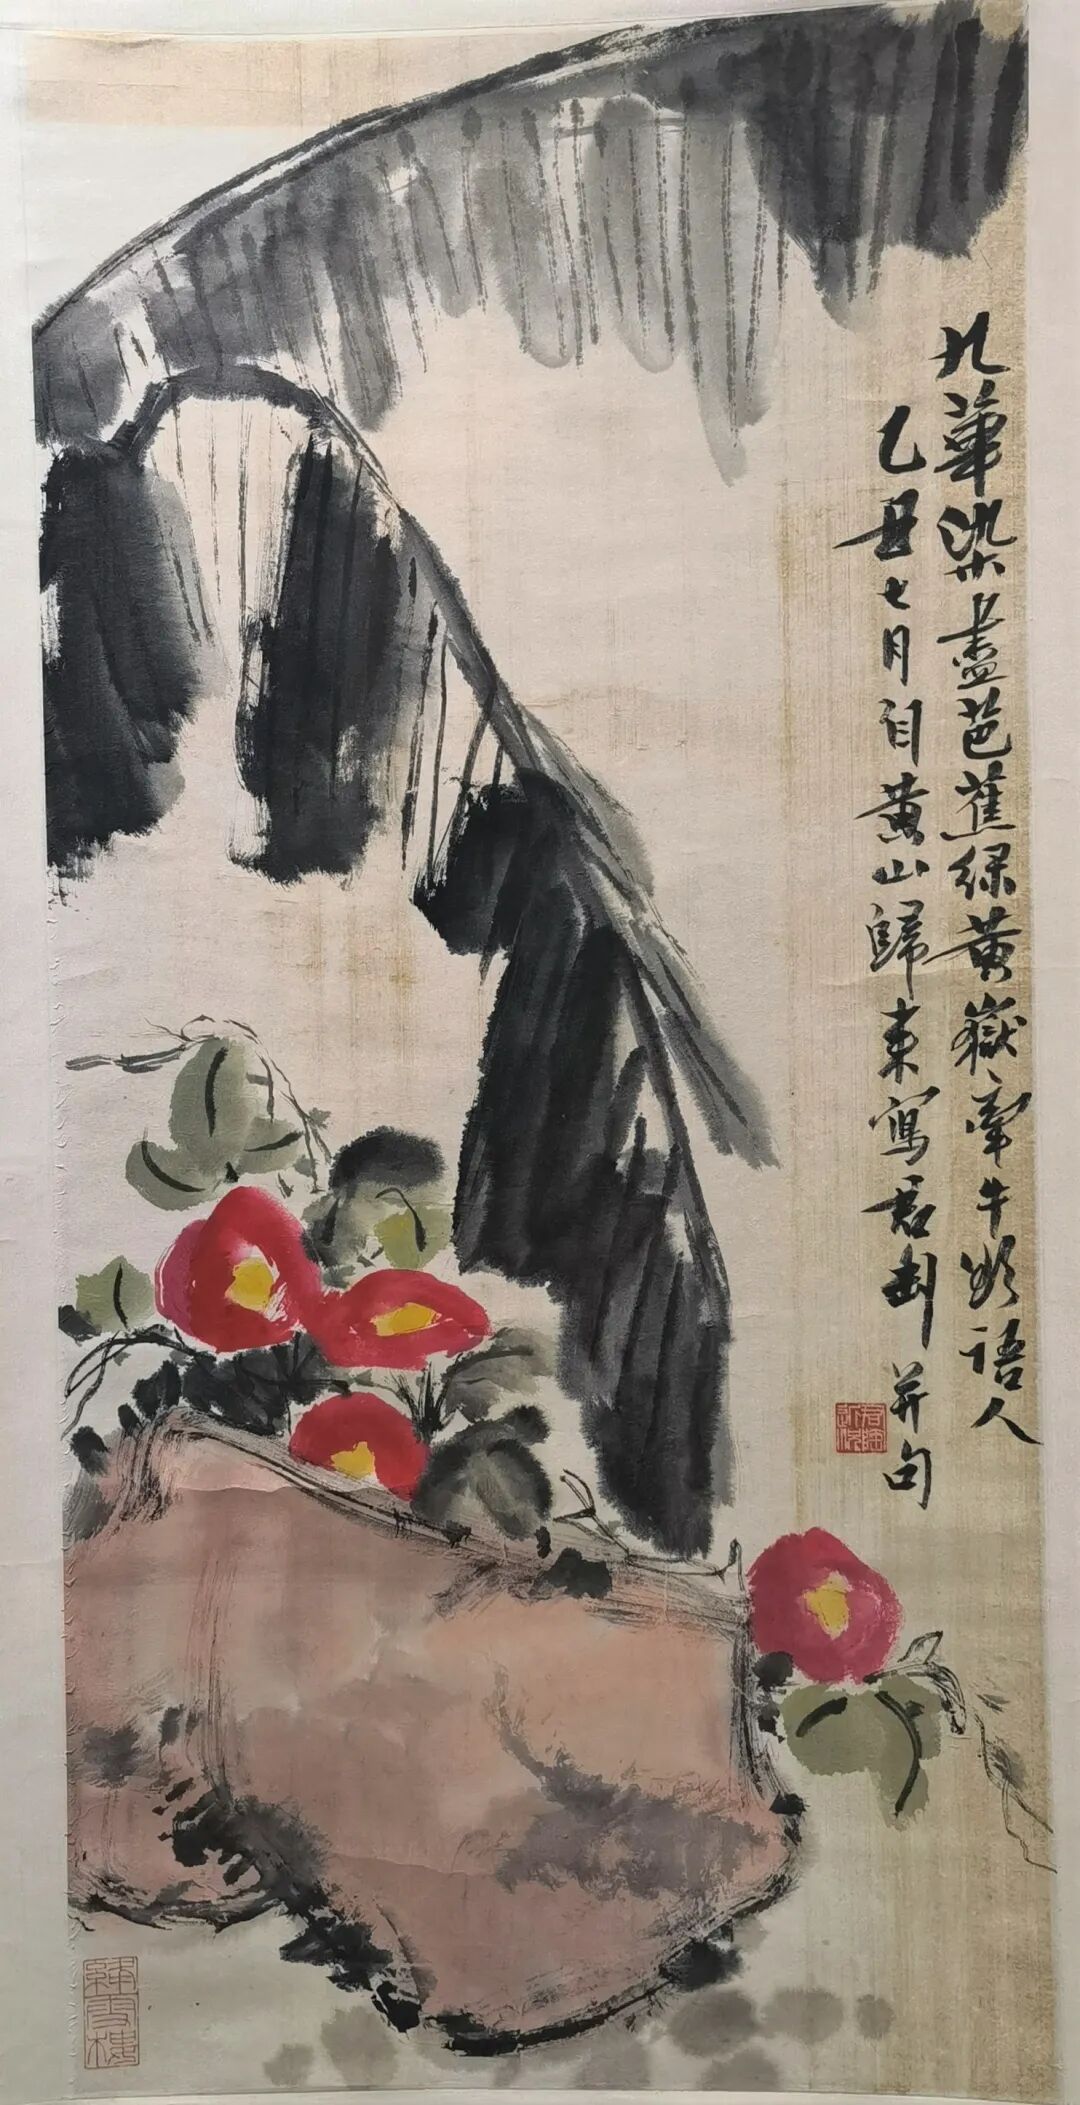 九華染盡芭蕉綠黄嶽牽牛欲語人
乙丑七月自黄山歸來寫君匋并句